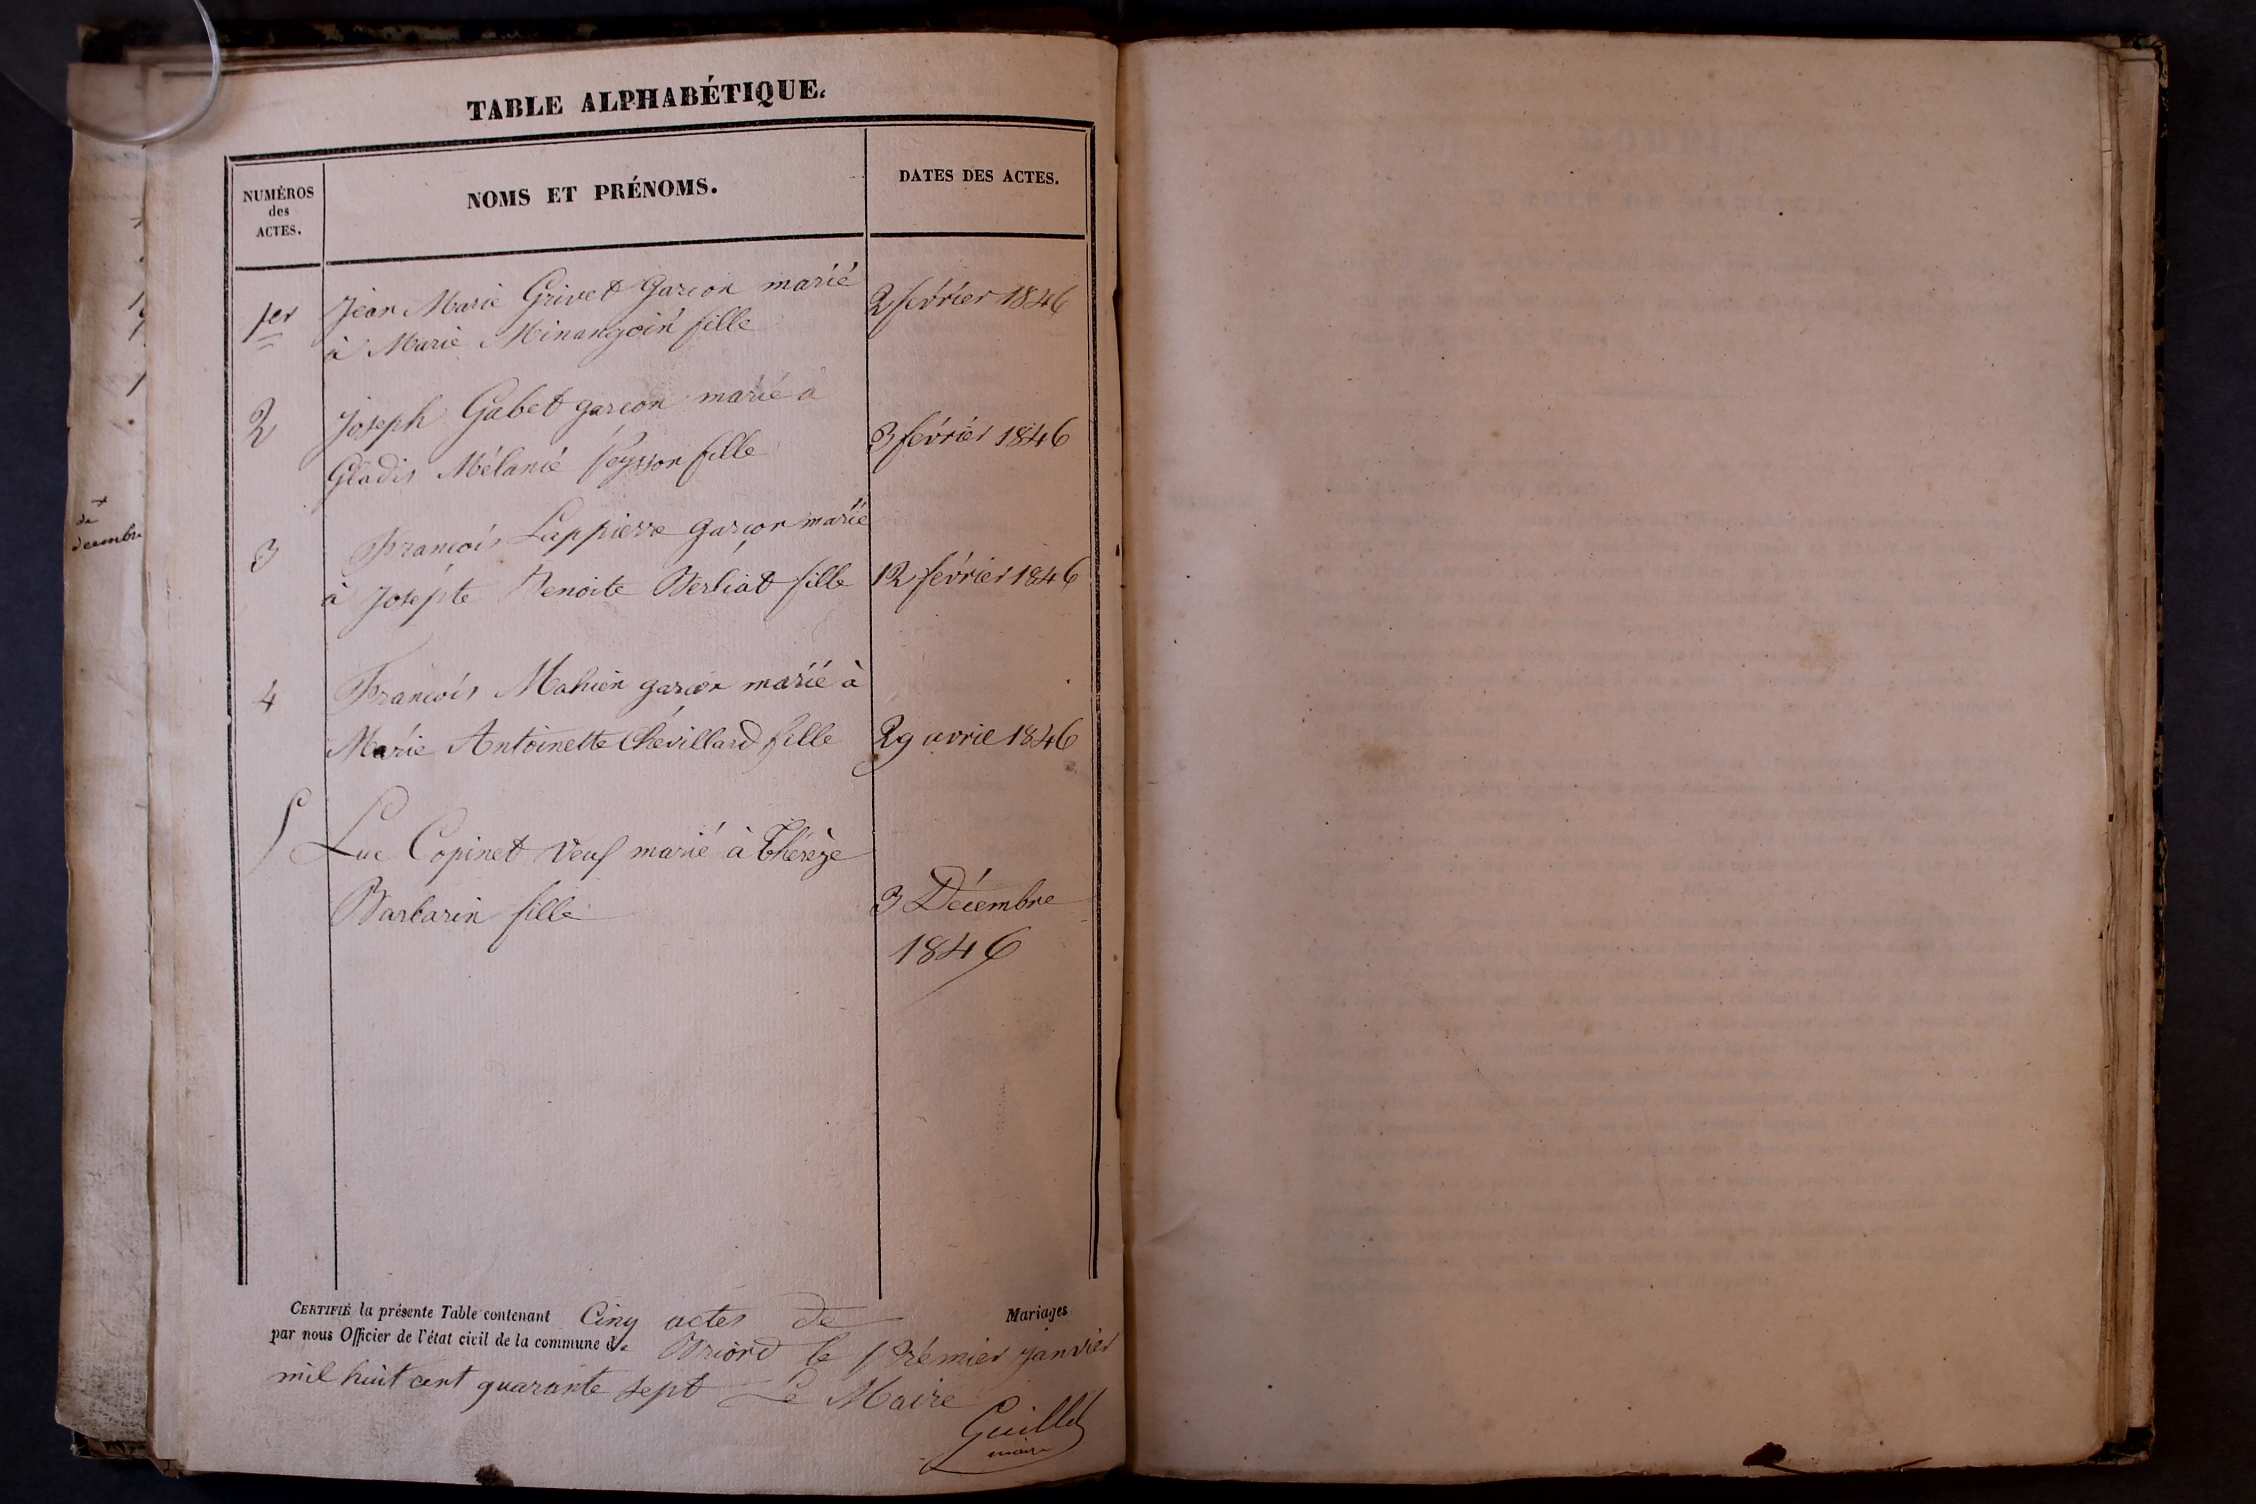 TABLE ALPHABÉTIQUE.
NUMÉROS
des
ACTES.
NOMS ET PRÉNOMS.
DATES DES ACTES.
1er
Jean Marie Grivet garcon marié
à Marie Minangoin fille
2 février 1846
2
Joseph Gabet garcon marié à
Mélanie Peysson fille
3 février 1846
3
François Lappierre garçon marié
à Josepte Benoite Berliat fille
12 février 1846
4
François Mahien garçon marié à
Marie Antoinette Chevillard fille
29 avril 1846
5
Luc Copinet veuf marié à Thérèze
Barbarin fille
3 Décembre
1846
CERTIFIÉ la présente Table contenant Cinq actes de Mariages
par nous Officier de l'état civil de la commune de Briord le premier janvier
mil huit cent quarante sept Le Maire
Guillet
maire
de
decembre